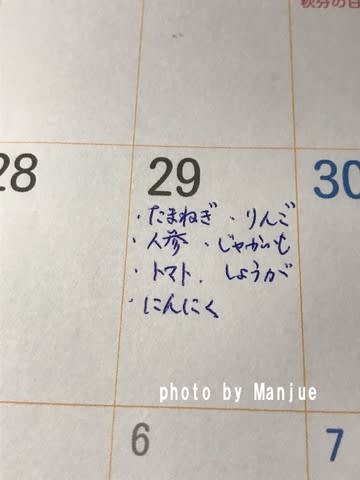 秋分の日
28 29 30
・たまねぎ ・りんご
・人参 ・じゃがいも
・トマト ・しょうが
・にんにく
photo by Manjue
6 7